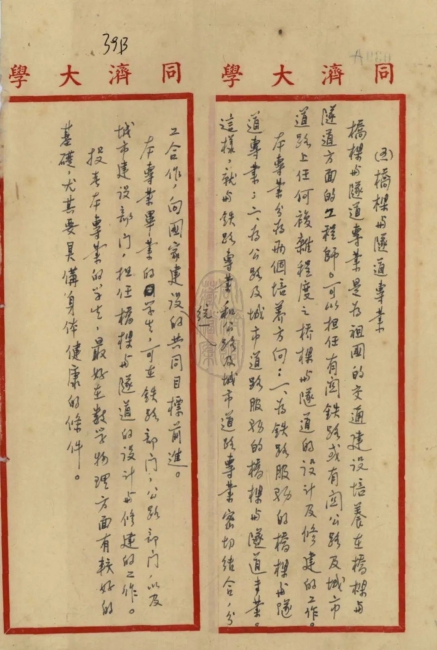 39B
同濟大學
同濟大學
橋樑与隧道專業
橋樑与隧道專業是为祖国的交通建设培養在橋樑与
隧道方面的工程師。可以担任有関鉄路或有関公路及城市
道路上任何複雜程度之橋樑与隧道的设计及修建的工作。
本專業分为两個培養方向：一、为鉄路服務的橋樑与隧
道專業；二、为公路及城市道路服務的橋樑与隧道專業。
這樣，就与鉄路專業和公路及城市道路專業密切结合，分
統一
工合作，向國家建设的共同目標前進。
本專業畢業的学生，可在鉄路部门，公路部门以及
城市建设部门，担任橋樑与隧道的设计与修建的工作。
投考本專業的学生，最好在数学物理方面有較好的
基礎，尤其要具備身体健康的條件。